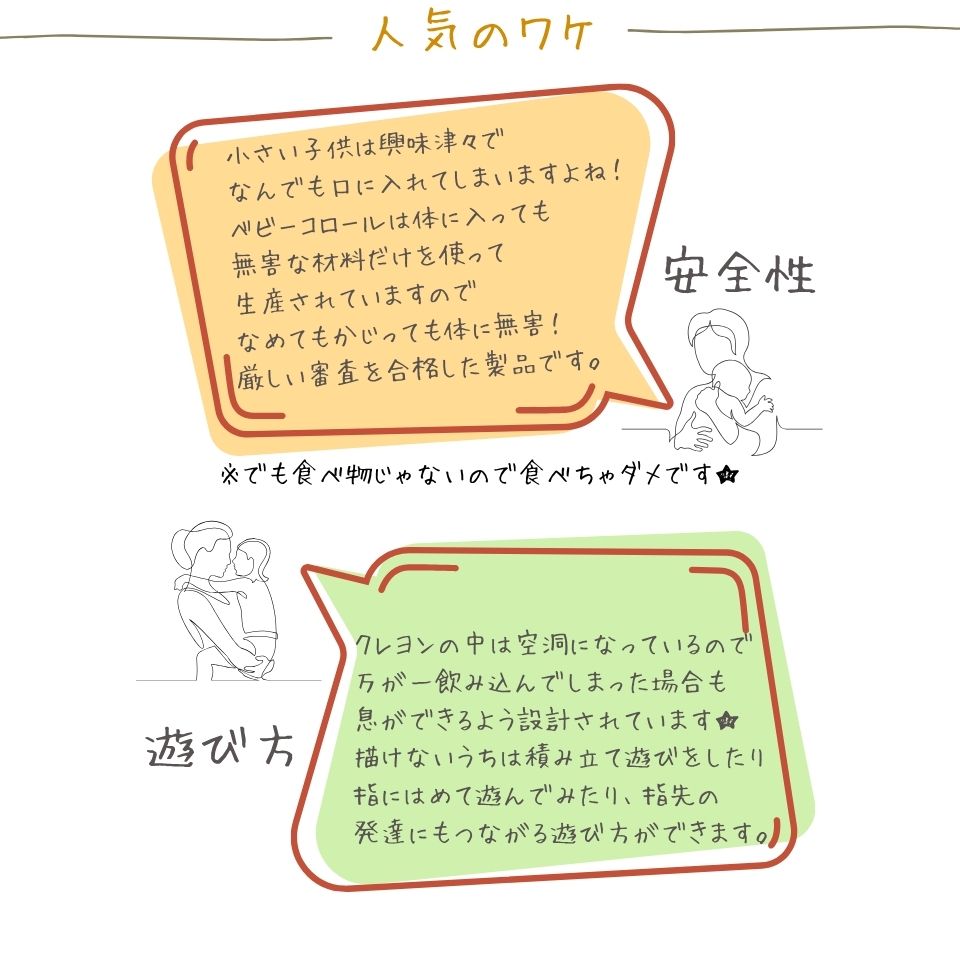 人気のワケ
小さい子供は興味津々で
なんでも口に入れてしまいますよね！
ベビーコロールは体に入っても
無害な材料だけを使って
生産されていますので
なめてもかじっても体に無害！
厳しい審査を合格した製品です。
安全性
※でも食べ物じゃないので食べちゃダメです★
クレヨンの中は空洞になっているので
万が一飲み込んでしまった場合も
息ができるよう設計されています★
描けないうちは積み立て遊びをしたり
指にはめて遊んでみたり、指先の
発達にもつながる遊び方ができます。
遊び方